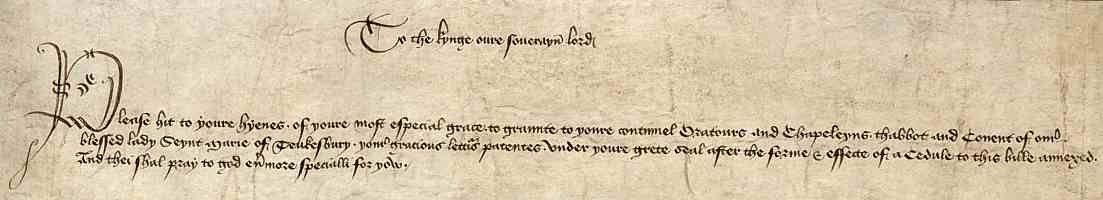 To the kynge oure soverayn lord
Please hit to youre hyenes of youre most especial grace to graunte to youre continuel Oratours and Chapeleyns thabbot and Covent of our
blessed lady Seynt Marie of Teukesbury your gracious lettres patentes under youre grete seal after the forme & effecte of a Cedule to this bille annexed.
And thei shal pray to god evermore specialli for yow.